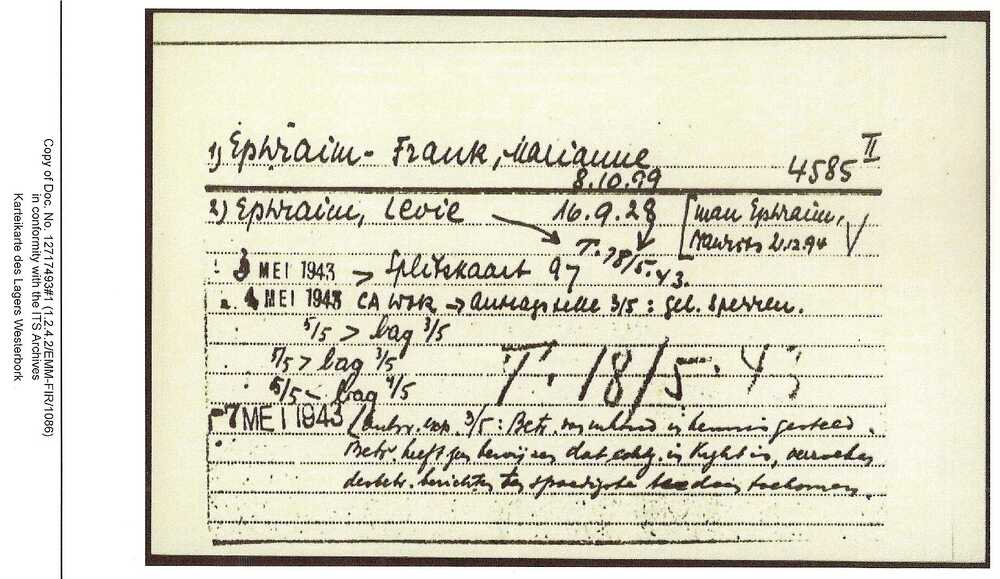 Copy of Doc. No. 12717493#1 (1.2.4.2/EMM-FIR/1086)
in conformity with the ITS Archives
Karteikarte des Lagers Westerbork
1) Ephraim - Frank, Marianne
8.10.99
4585 II
2) Ephraim, Levie 16.9.28 [man Ephraim,
21.12.94
T. 18/5.43.
3 MEI 1943 > Splitskaart 97
4 MEI 1943 CA WBK → Antragstelle 3/5 : gel. Sperren.
5/5 > bag 3/5
5/5 > bag 3/5
6/5 - bag 4/5
T. 18/5. 43
7 MEI 1943 3/5 : Betr. in kennis gesteld.
Betr. heeft geen bewijzen dat echtg. in is,
berichten ten spoedigste toekomen.